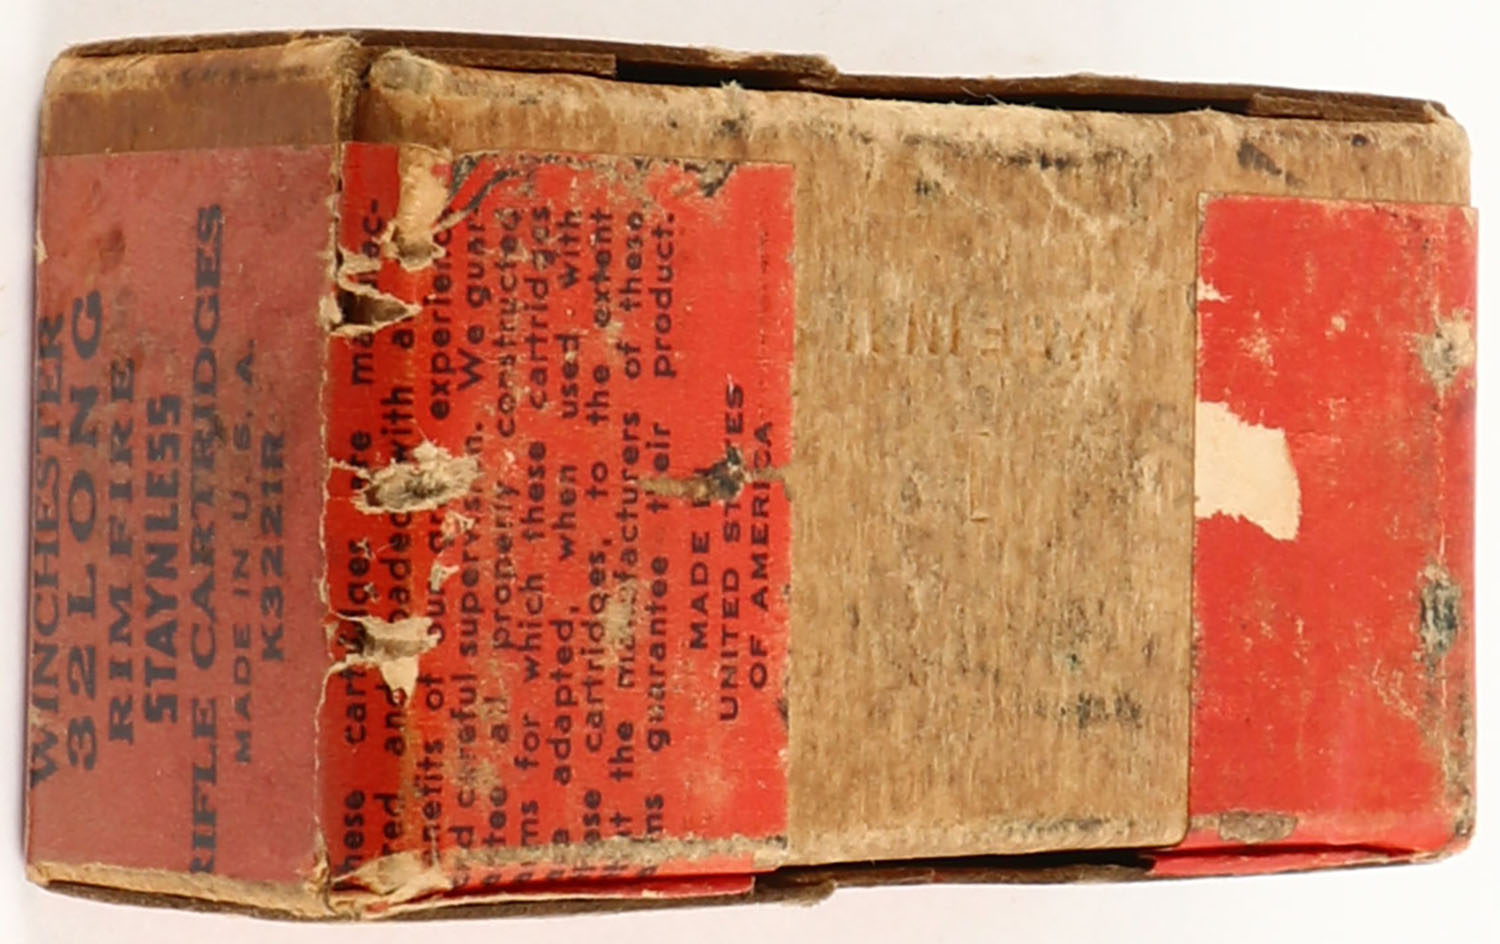 WINCHESTER
32 LONG
RIMFIRE
STAYNLESS
RIFLE CARTRIDGES
MADE IN U.S.A.
K3221R
hese cartridges are ma ac-
red and loaded with a
nefits of our experienc
nd careful supervision. We guar-
ntee all properly constructed
arms for which these cartridges
re adapted, when used with
these cartridges, to the extent
that the manufacturers of these
arms guarantee their product.
MADE I
UNITED STATES
OF AMERICA